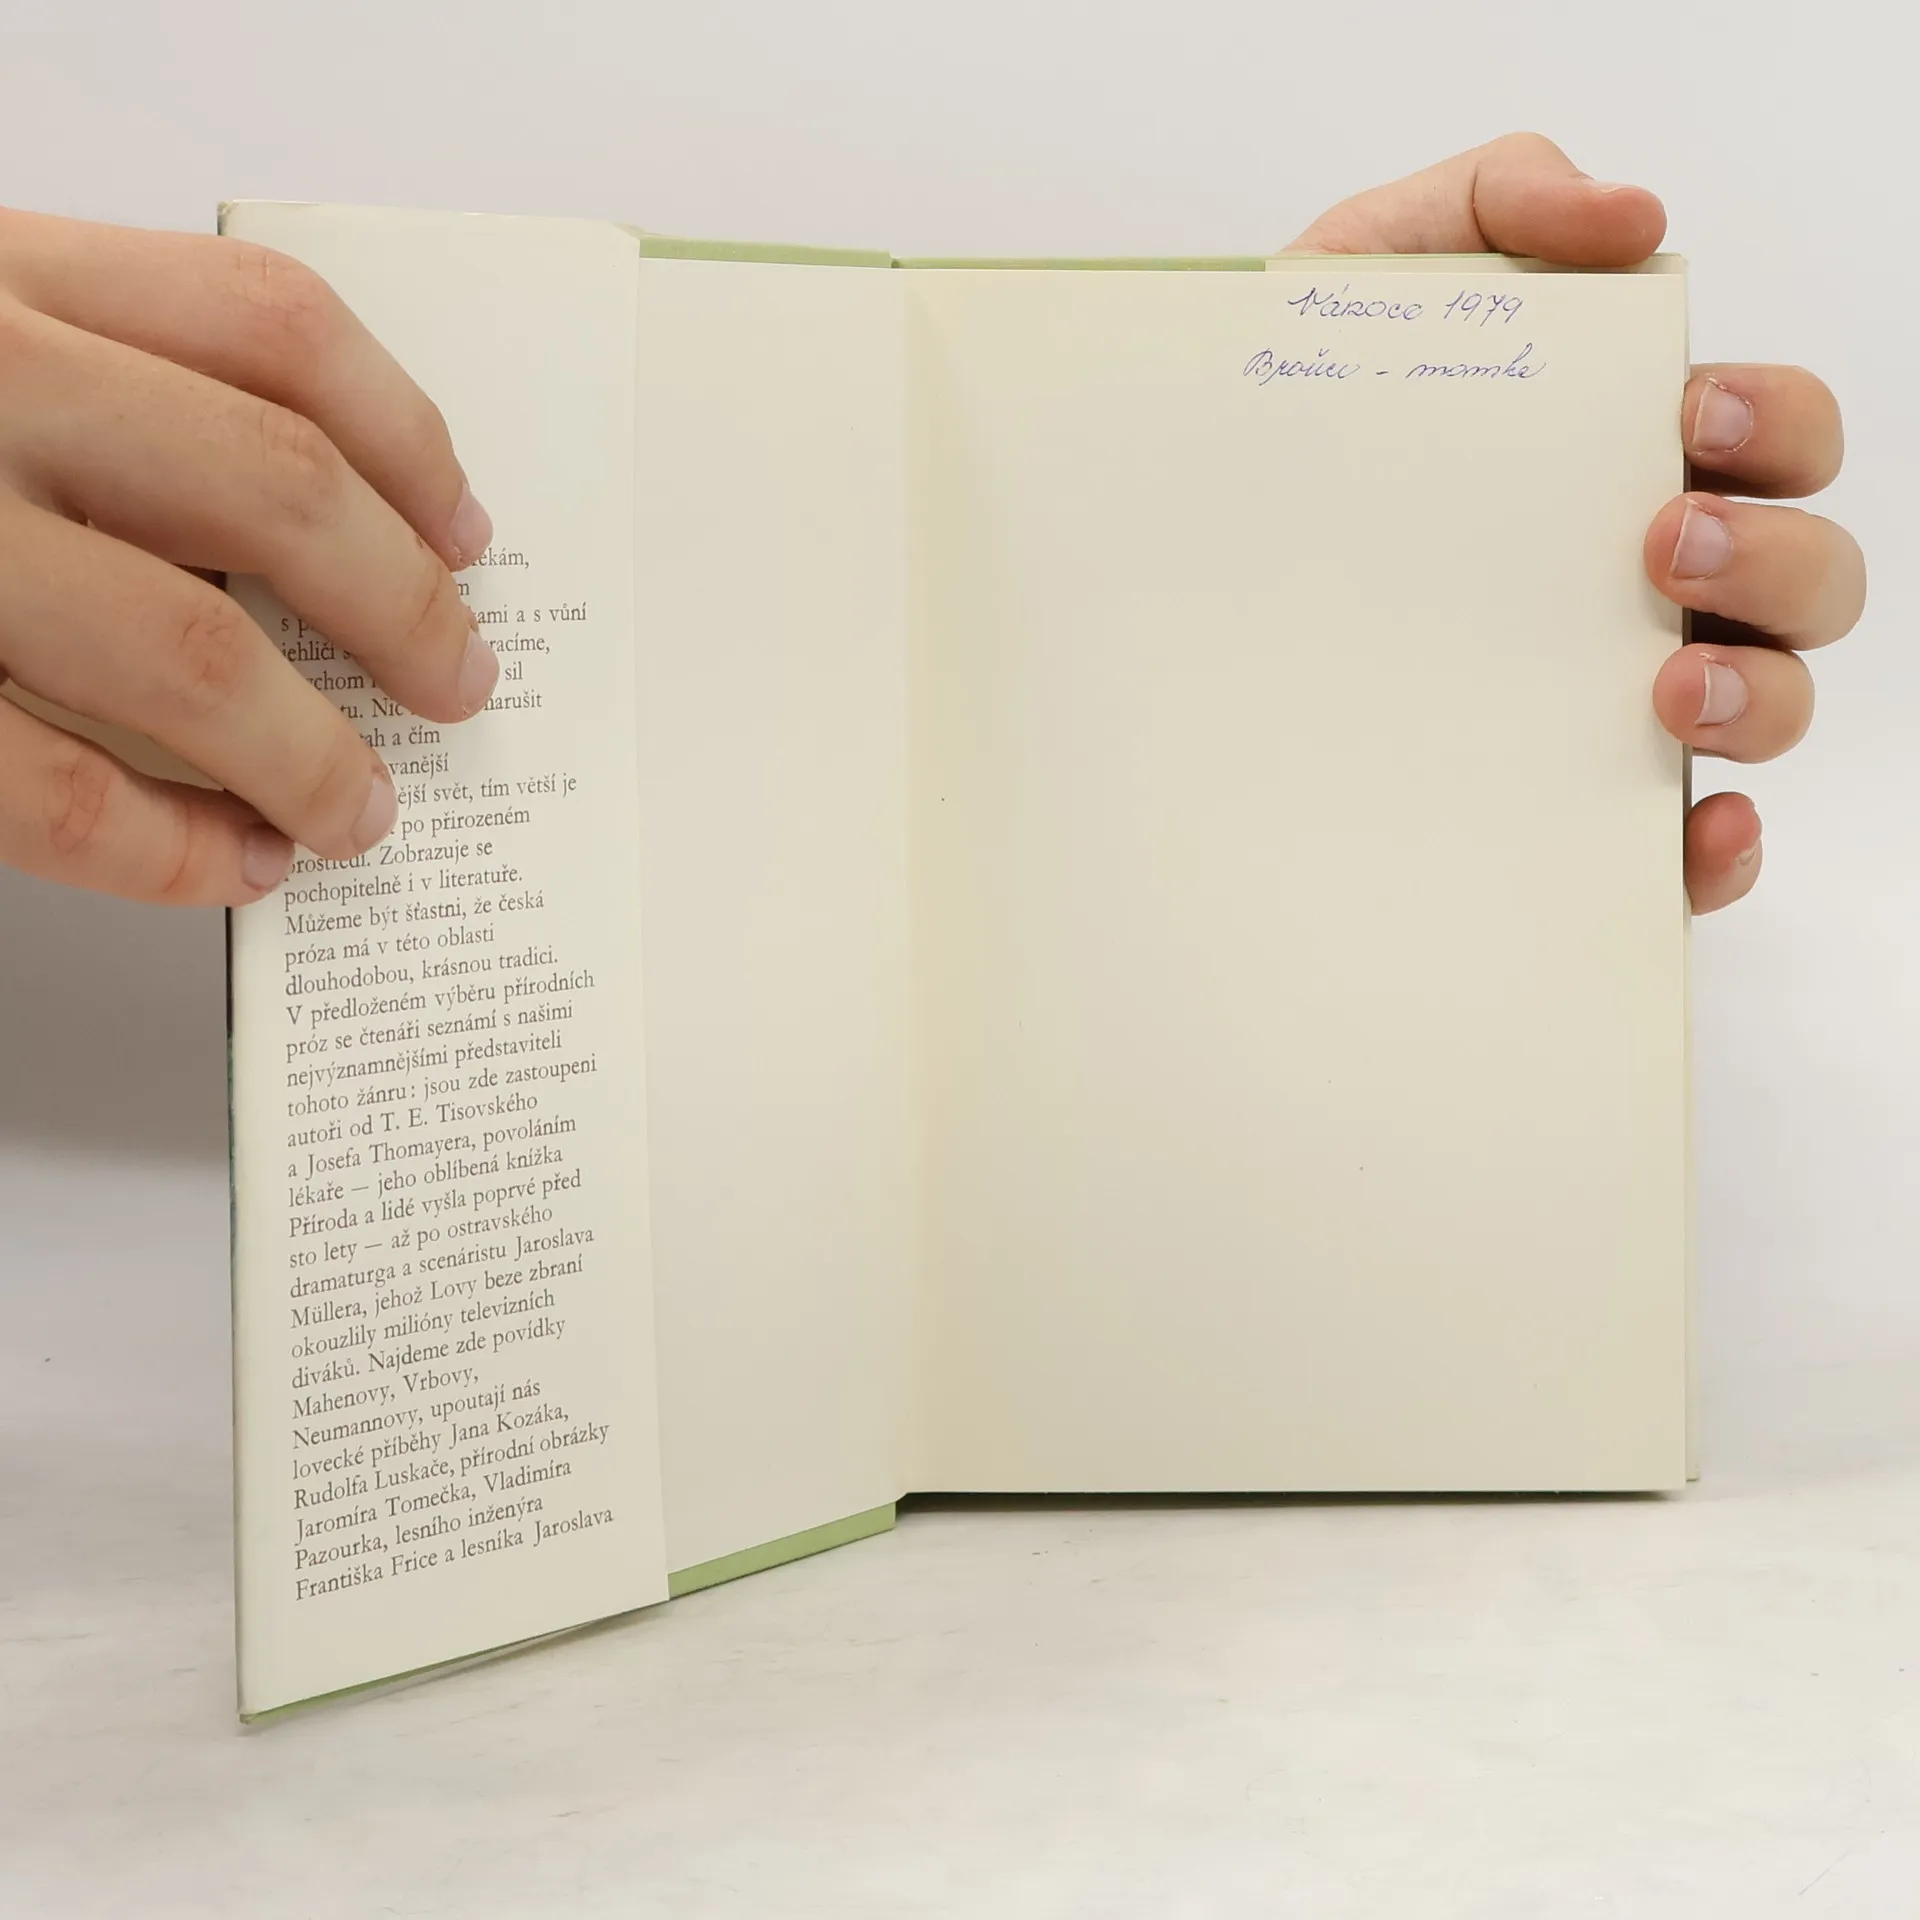 řekám,
m
s kami a s vůní
jehličí vracíme,
abychom sil
tu. Nic narušit
vztah a čím
vanější
ější svět, tím větší je
po přirozeném
prostředí. Zobrazuje se
pochopitelně i v literatuře.
Můžeme být šťastni, že česká
próza má v této oblasti
dlouhodobou, krásnou tradici.
V předloženém výběru přírodních
próz se čtenáři seznámí s našimi
nejvýznamnějšími představiteli
tohoto žánru: jsou zde zastoupeni
autoři od T. E. Tisovského
a Josefa Thomayera, povoláním
lékaře — jeho oblíbená knížka
Příroda a lidé vyšla poprvé před
sto lety — až po ostravského
dramaturga a scenáristu Jaroslava
Müllera, jehož Lovy beze zbraní
okouzlily milióny televizních
diváků. Najdeme zde povídky
Mahenovy, Vrbovy,
Neumannovy, upoutají nás
lovecké příběhy Jana Kozáka,
Rudolfa Luskače, přírodní obrázky
Jaromíra Tomečka, Vladimíra
Pazourka, lesního inženýra
Františka Frice a lesníka Jaroslava
Vánoce 1979
Broučci - mamka